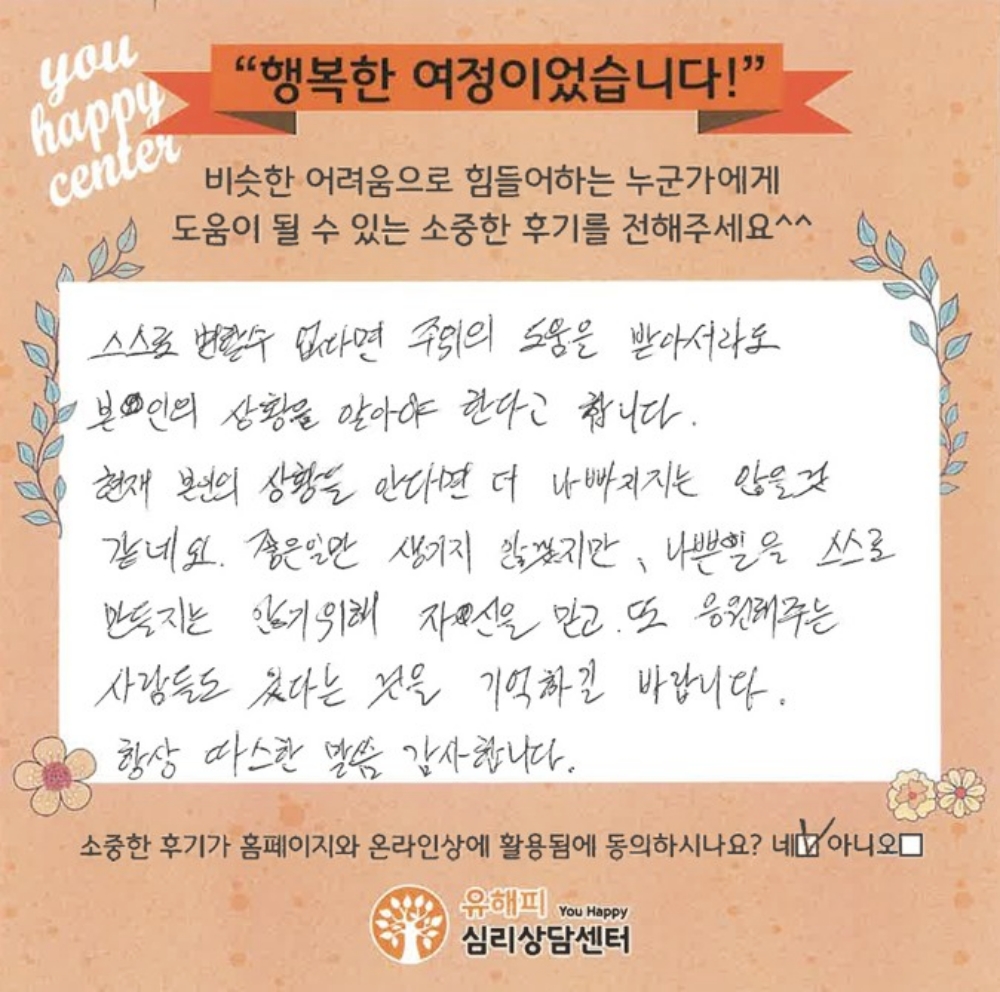 you
happy
center
“행복한 여정이었습니다!”
비슷한 어려움으로 힘들어하는 누군가에게
도움이 될 수 있는 소중한 후기를 전해주세요^^
스스로 변할수 없다면 주위의 도움을 받아서라도
본인의 상황을 알아야 한다고 합니다.
현재 본인의 상황을 안다면 더 나빠지지는 않을것
같네요. 좋은일만 생기지 않겠지만, 나쁜일을 스스로
만들지는 않기위해 자신을 믿고. 또 응원해주는
사람들도 있다는 것을 기억하길 바랍니다.
항상 따스한 말씀 감사합니다.
소중한 후기가 홈페이지와 온라인상에 활용됨에 동의하시나요? 네☑ 아니오□
유해피 You Happy
심리상담센터